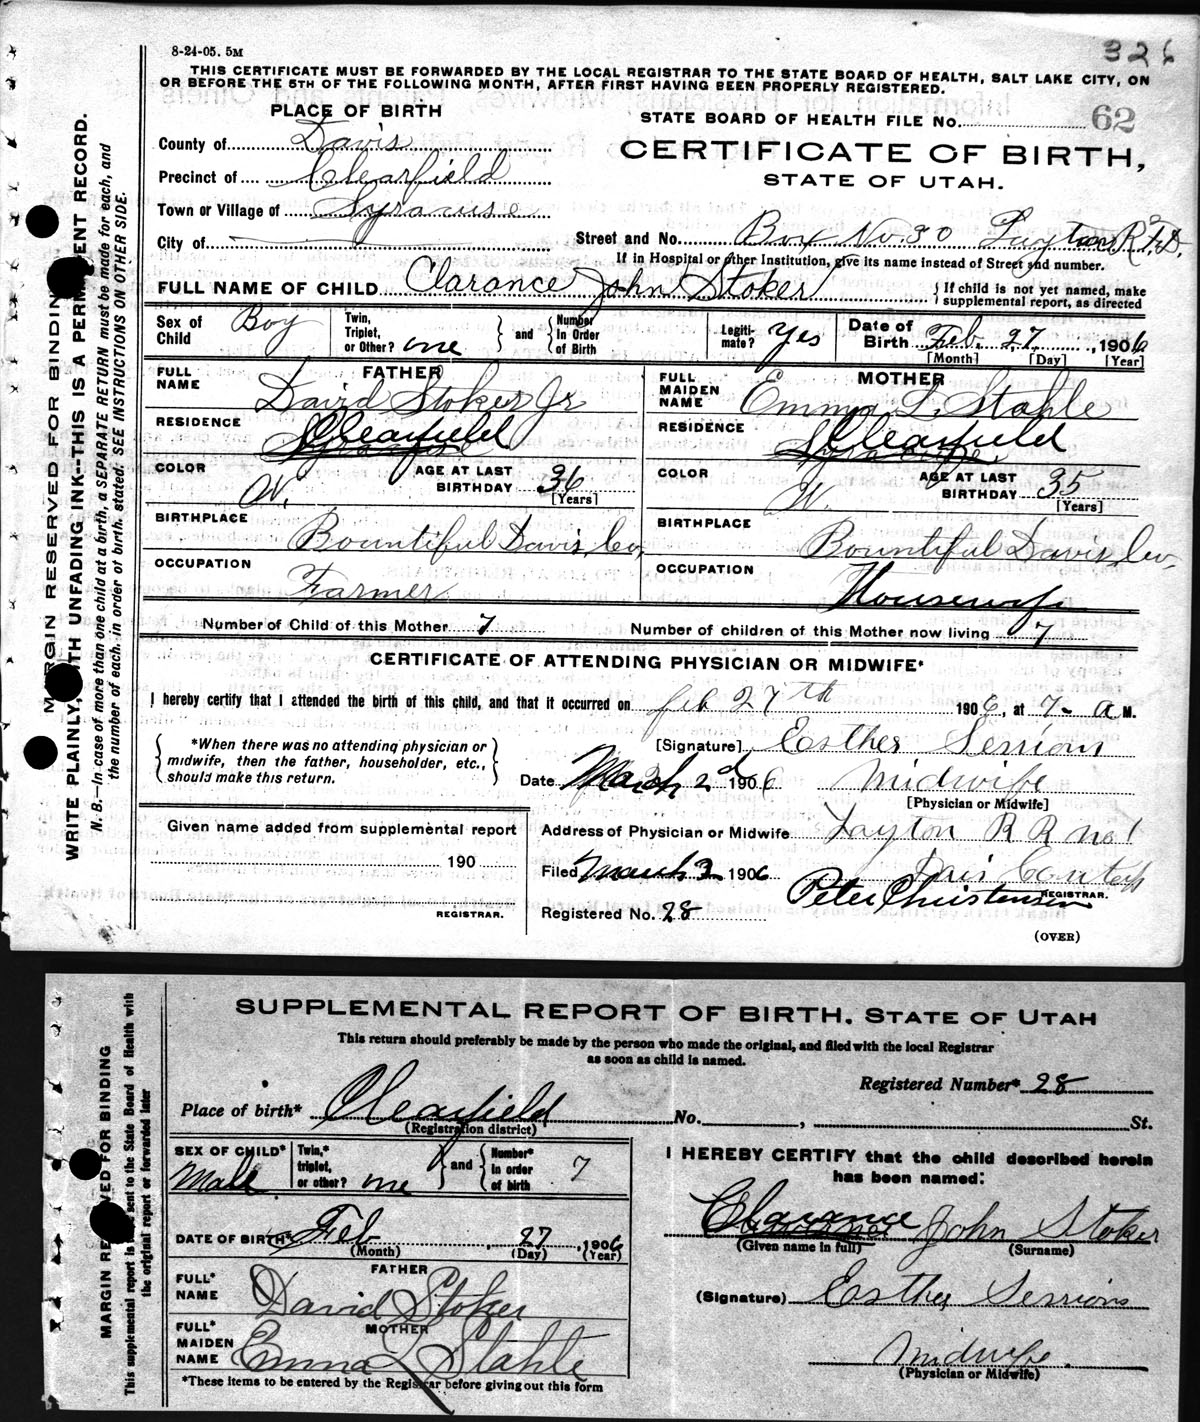 8-24-05. 5M
326
THIS CERTIFICATE MUST BE FORWARDED BY THE LOCAL REGISTRAR TO THE STATE BOARD OF HEALTH, SALT LAKE CITY, ON
OR BEFORE THE 5TH OF THE FOLLOWING MONTH, AFTER FIRST HAVING BEEN PROPERLY REGISTERED.
PLACE OF BIRTH
STATE BOARD OF HEALTH FILE No. 62
County of Davis
CERTIFICATE OF BIRTH,
Precinct of Clearfield
STATE OF UTAH.
Town or Village of Syracuse
City of
Street and No. Box No. 30 Layton R.F.D.
If in Hospital or other Institution, give its name instead of Street and number.
FULL NAME OF CHILD Clarance John Stoker
{ If child is not yet named, make supplemental report, as directed
Sex of Child Boy
Twin, Triplet, or Other? one } and { Number in Order of Birth
Legitimate? Yes
Date of Birth Feb. 27, 1906
[Month] [Day] [Year]
FATHER
FULL NAME David Stoker Jr
RESIDENCE Clearfield
COLOR W.
AGE AT LAST BIRTHDAY 36 [Years]
BIRTHPLACE Bountiful Davis, Co,
OCCUPATION Farmer
MOTHER
FULL MAIDEN NAME Emma L. Stahle
RESIDENCE Clearfield
COLOR W.
AGE AT LAST BIRTHDAY 35 [Years]
BIRTHPLACE Bountiful Davis, Co,
OCCUPATION Housewife
Number of Child of this Mother 7
Number of children of this Mother now living 7
CERTIFICATE OF ATTENDING PHYSICIAN OR MIDWIFE*
I hereby certify that I attended the birth of this child, and that it occurred on feb 27th 1906, at 7- a M.
{ *When there was no attending physician or midwife, then the father, householder, etc., should make this return. }
[Signature] Esther Sessions
Date March 2d 1906
Midwife
[Physician or Midwife]
Given name added from supplemental report
190
REGISTRAR.
Address of Physician or Midwife Layton R R no 1
Davis County
Filed March 3 1906
Peter Christensen
REGISTRAR.
Registered No. 28
(OVER)
MARGIN RESERVED FOR BINDING
WRITE PLAINLY, WITH UNFADING INK--THIS IS A PERMANENT RECORD.
N. B.—In case of more than one child at a birth, a SEPARATE RETURN must be made for each, and
the number of each, in order of birth, stated. SEE INSTRUCTIONS ON OTHER SIDE.
SUPPLEMENTAL REPORT OF BIRTH. STATE OF UTAH
This return should preferably be made by the person who made the original, and filed with the local Registrar
as soon as child is named.
Registered Number* 28
Place of birth* Clearfield No. , St.
(Registration district)
SEX OF CHILD* Male
Twin,* triplet, or other? one } and { Number* in order of birth 7
DATE OF BIRTH* Feb 27, 1906
(Month) (Day) (Year)
FATHER
FULL* NAME David Stoker
MOTHER
FULL* MAIDEN NAME Emma L Stahle
*These items to be entered by the Registrar before giving out this form
I HEREBY CERTIFY that the child described herein
has been named:
Clarance John Stoker
(Given name in full) (Surname)
(Signature) Esther Sessions
Midwife.
(Physician or Midwife)
MARGIN RESERVED FOR BINDING
This supplemental report is to be sent to the State Board of Health with
the original report or forwarded later